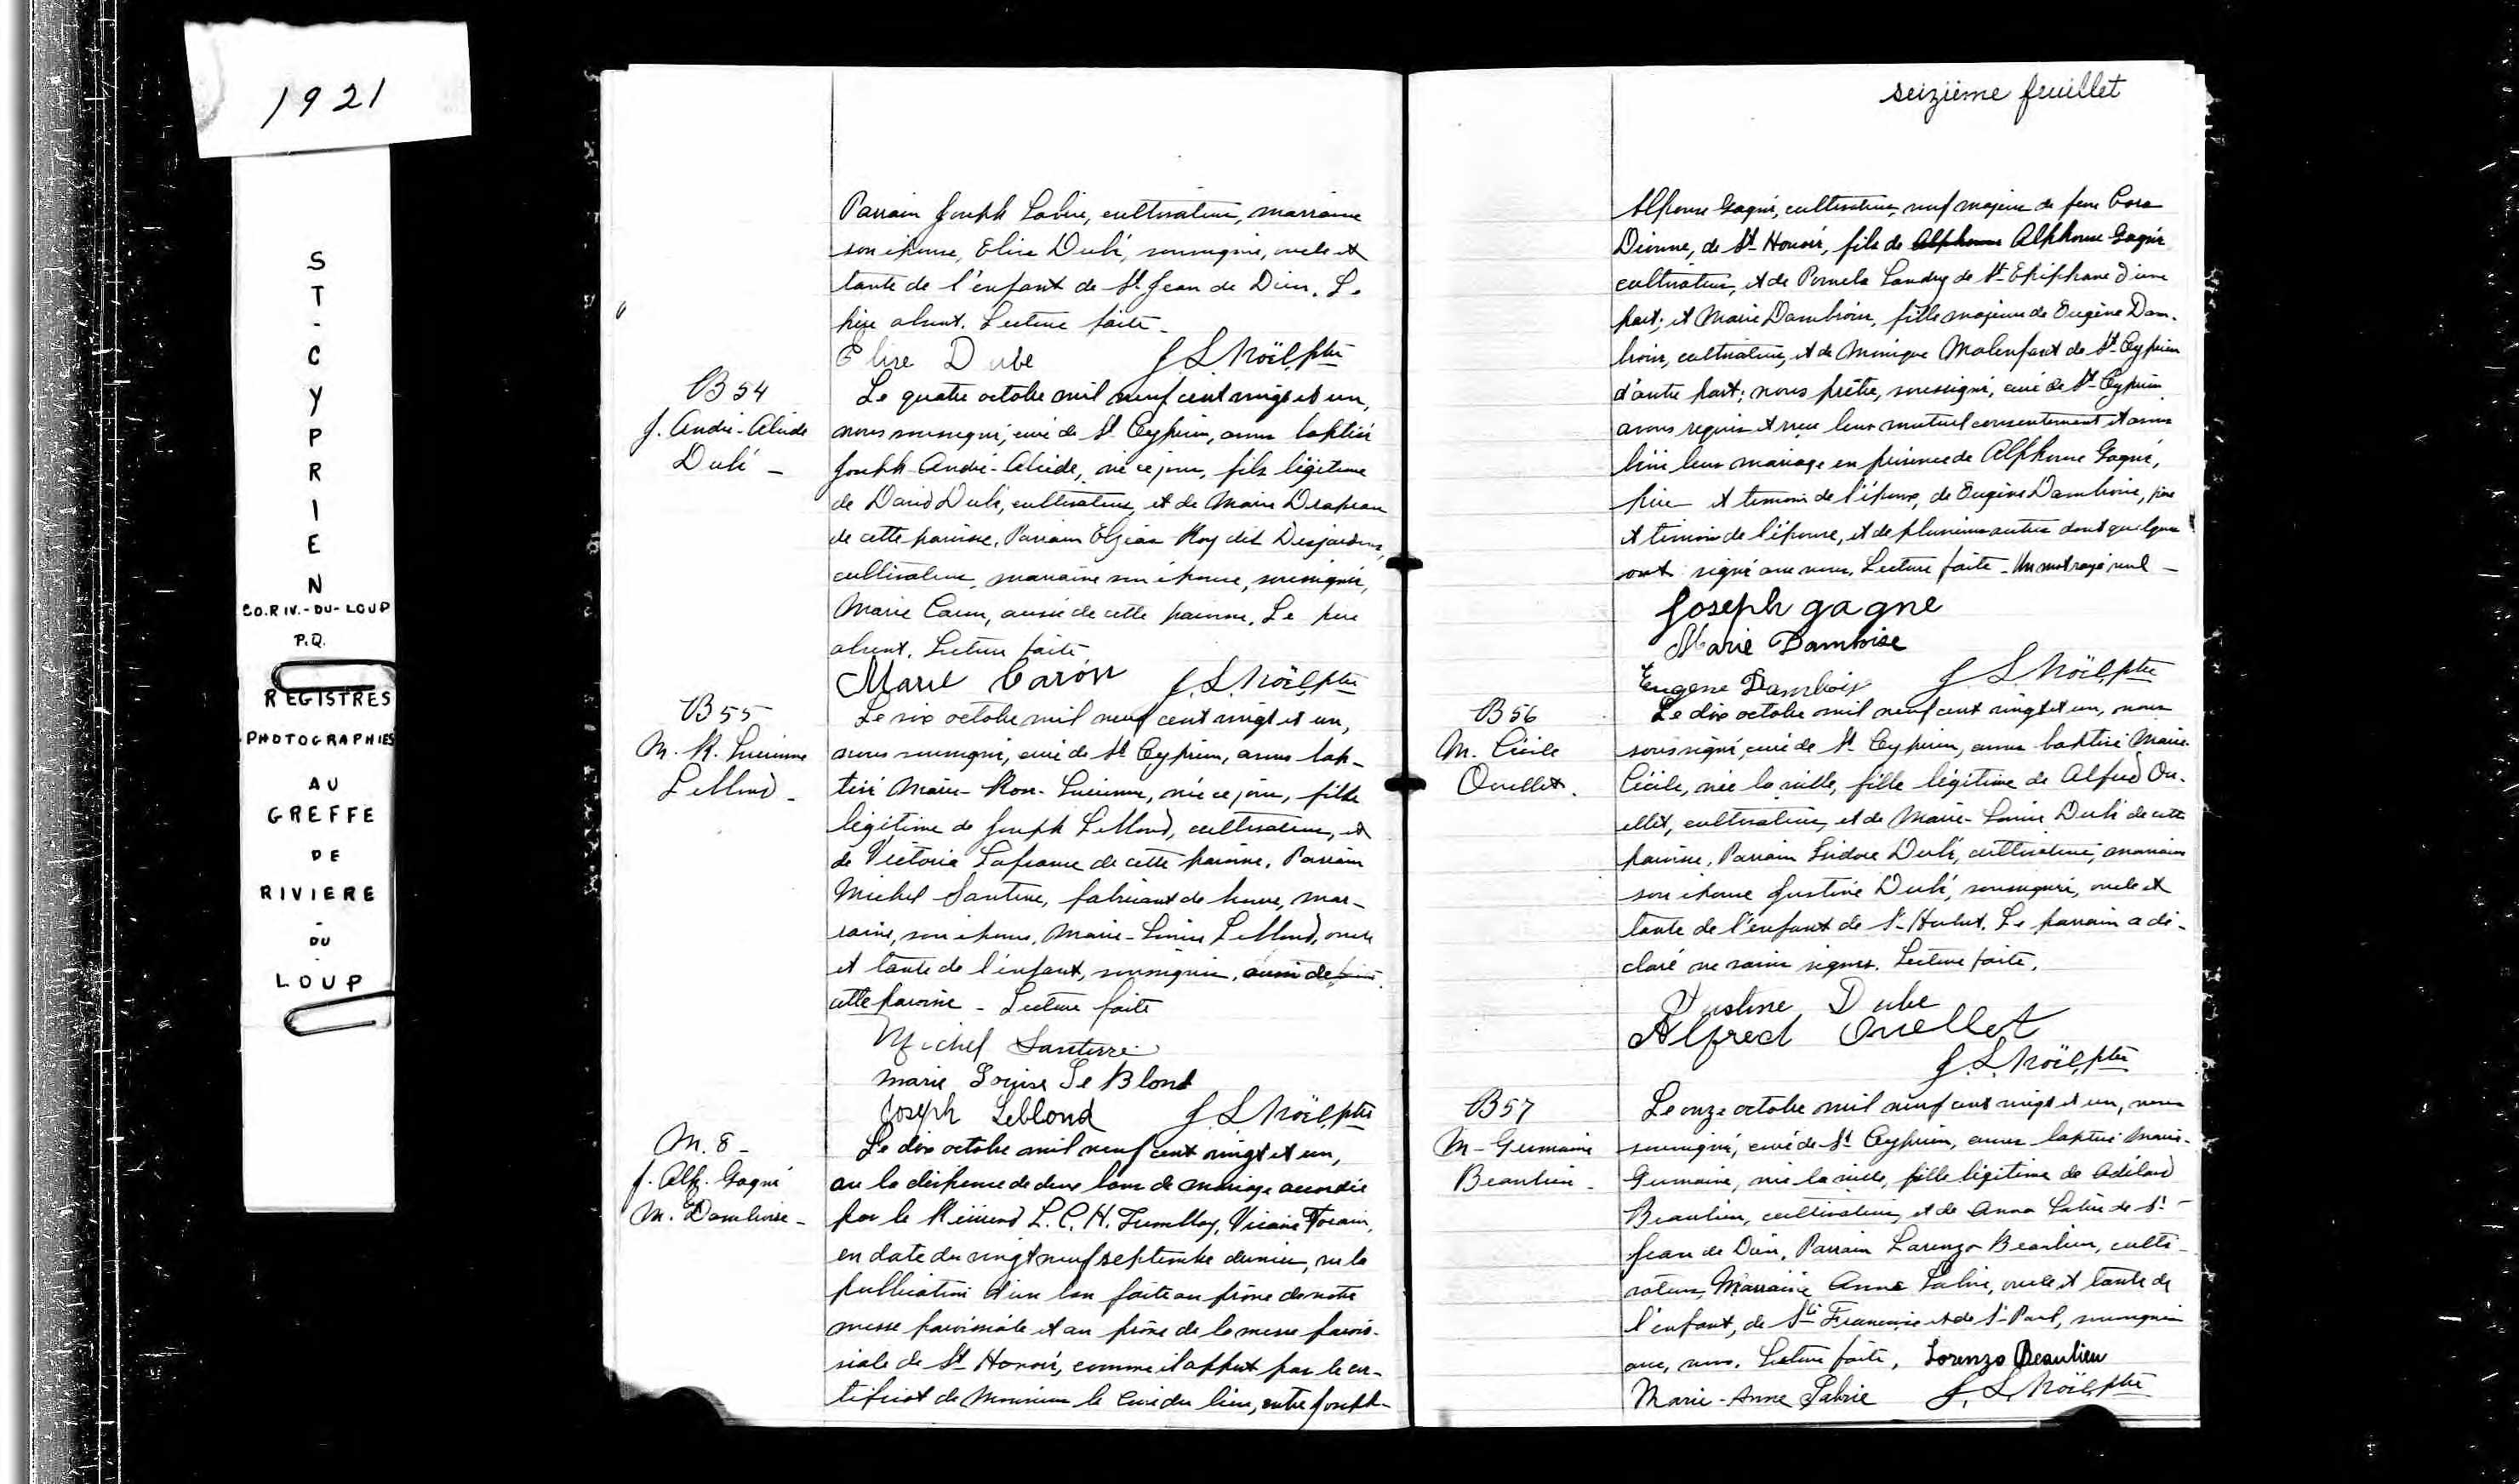 1921
ST-CYPRIEN
CO.RIV.-DU-LOUP
P.Q.
REGISTRES
PHOTOGRAPHIES
AU
GREFFE
DE
RIVIERE
-
DU
-
LOUP
Parrain Joseph Labrie, cultivateur, marraine
son épouse, Elise Dubé, soussignée, oncle et
tante de l'enfant de St Jean de Dieu. Le
père absent. Lecture faite.
Elise Dube J. L. Noël, ptre
B 54
J. André-Alcide
Dubé -
Le quatre octobre mil neuf cent vingt et un,
nous soussigné, curé de St Cyprien, avons baptisé
Joseph-André-Alcide, né ce jour, fils légitime
de David Dubé, cultivateur, et de Marie Drapeau
de cette paroisse. Parrain Elzéar Roy dit Desjardins,
cultivateur, marraine son épouse, soussignée,
Marie Caron, aussi de cette paroisse. Le père
absent. Lecture faite
Marie Caron J. L. Noël, ptre
B 55
M. R. Lucienne
LeBlond -
Le six octobre mil neuf cent vingt et un,
nous soussigné, curé de St Cyprien, avons bap-
tisé Marie-Rose-Lucienne, née ce jour, fille
légitime de Joseph LeBlond, cultivateur, et
de Victoria Lafrance de cette paroisse. Parrain
Michel Santerre, fabricant de beurre, mar-
raine, son épouse, Marie-Louise LeBlond, oncle
et tante de l'enfant, soussignés, aussi de
cette paroisse - Lecture faite
Michel Santerre
Marie Louise Le Blond
Joseph Leblond J. L. Noël, ptre
M. 8 -
J. Alp. Gagné
M. Damboise -
Le dix octobre mil neuf cent vingt et un,
vu la dispense de deux bans de mariage accordée
par le Révérend L. C. H. Tremblay, Vicaire Forain,
en date du vingt neuf septembre dernier, vu la
publication d'un ban faite au prône de notre
messe paroissiale et au prône de la messe parois-
siale de St Honoré, comme il appert par le cer-
tificat de Monsieur le Curé du lieu, entre Joseph-
seizième feuillet
Alphonse Gagné, cultivateur, veuf majeur de feue Cora
Dionne, de St Honoré, fils de Alphonse Alphonse Gagné
cultivateur, et de Pamela Landry de St Epiphane d'une
part; et Marie Damboise, fille majeure de Eugène Dam-
boise, cultivateur, et de Monique Malenfant de St Cyprien
d'autre part; nous prêtre, soussigné, curé de St Cyprien
avons requis et reçu leur mutuel consentement et avons
béni leur mariage en présence de Alphonse Gagné,
père et témoin de l'époux, de Eugène Damboise, père
et témoin de l'épouse, et de plusieurs autres dont quelques
ont signé avec nous. Lecture faite - Un mot rayé nul -
Joseph gagne
Marie Damboise
Eugene Damboise J. L. Noël, ptre
B 56
M. Cécile
Ouellet.
Le dix octobre mil neuf cent vingt et un, nous
soussigné, curé de St Cyprien, avons baptisé Marie-
Cécile, née la veille, fille légitime de Alfred Ou-
ellet, cultivateur, et de Marie-Louise Dubé de cette
paroisse. Parrain Isidore Dubé, cultivateur, marraine
son épouse Justine Dubé, soussignée, oncle et
tante de l'enfant de St-Hubert. Le parrain a dé-
claré ne savoir signer. Lecture faite.
Justine Dube
Alfred Ouellet
J. L. Noël, ptre
B 57
M-Germaine
Beaulieu -
Le onze octobre mil neuf cent vingt et un, nous
soussigné, curé de St Cyprien, avons baptisé Marie-
Germaine, née la veille, fille légitime de Adélard
Beaulieu, cultivateur, et de Anna Labrie de St-
Jean de Dieu. Parrain Lorenzo Beaulieu, culti-
vateur, Marraine Anna Labrie, oncle et tante de
l'enfant, de Ste Françoise et de St Paul, soussignés
avec nous. Lecture faite, Lorenzo Beaulieu
Marie-Anne Labrie J. L. Noël, ptre